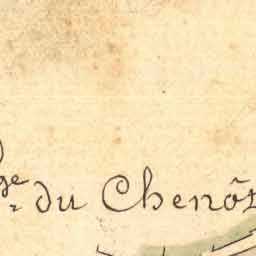 ge du Chenôt